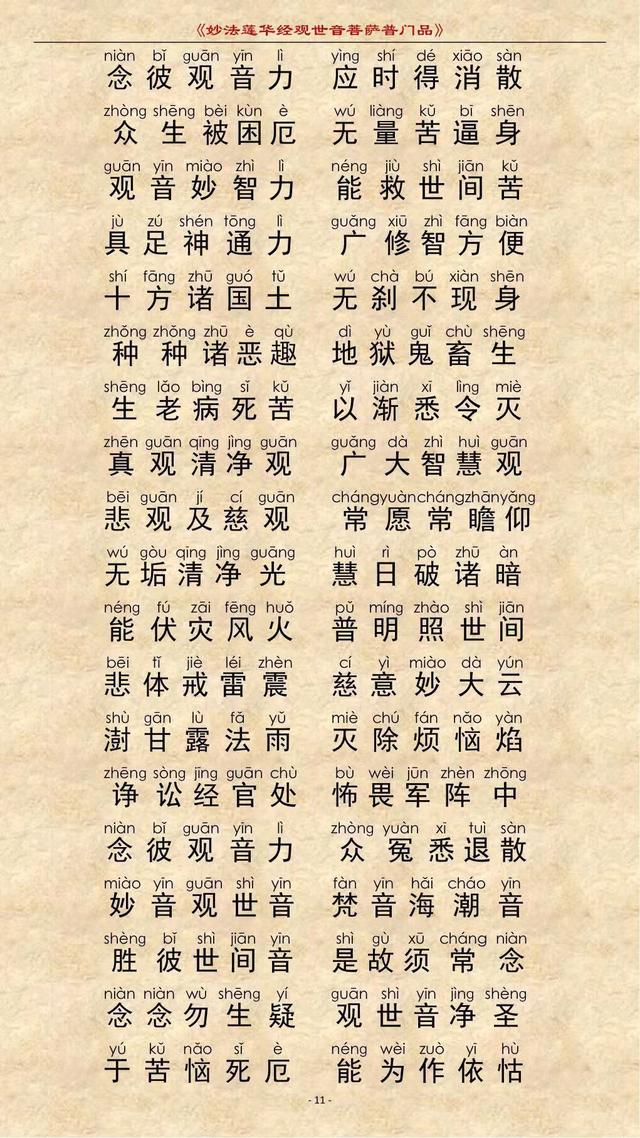 《妙法莲华经观世音菩萨普门品》
niàn bǐ guān yīn lì yìng shí dé xiāo sàn
念彼观音力 应时得消散
zhòng shēng bèi kùn è wú liàng kǔ bī shēn
众生被困厄 无量苦逼身
guān yīn miào zhì lì néng jiù shì jiān kǔ
观音妙智力 能救世间苦
jù zú shén tōng lì guǎng xiū zhì fāng biàn
具足神通力 广修智方便
shí fāng zhū guó tǔ wú chà bú xiàn shēn
十方诸国土 无刹不现身
zhǒng zhǒng zhū è qù dì yù guǐ chù shēng
种种诸恶趣 地狱鬼畜生
shēng lǎo bìng sǐ kǔ yǐ jiàn xī lìng miè
生老病死苦 以渐悉令灭
zhēn guān qīng jìng guān guǎng dà zhì huì guān
真观清净观 广大智慧观
bēi guān jí cí guān chángyuànchángzhānyǎng
悲观及慈观 常愿常瞻仰
wú gòu qīng jìng guāng huì rì pò zhū àn
无垢清净光 慧日破诸暗
néng fú zāi fēng huǒ pǔ míng zhào shì jiān
能伏灾风火 普明照世间
bēi tǐ jiè léi zhèn cí yì miào dà yún
悲体戒雷震 慈意妙大云
shù gān lù fǎ yǔ miè chú fán nǎo yàn
澍甘露法雨 灭除烦恼焰
zhēng sòng jīng guān chù bù wèi jūn zhèn zhōng
诤讼经官处 怖畏军阵中
niàn bǐ guān yīn lì zhòng yuàn xī tuì sàn
念彼观音力 众冤悉退散
miào yīn guān shì yīn fàn yīn hǎi cháo yīn
妙音观世音 梵音海潮音
shèng bǐ shì jiān yīn shì gù xū cháng niàn
胜彼世间音 是故须常念
niàn niàn wù shēng yí guān shì yīn jìng shèng
念念勿生疑 观世音净圣
yú kǔ nǎo sǐ è néng wèi zuò yī hù
于苦恼死厄 能为作依怙
- 11 -